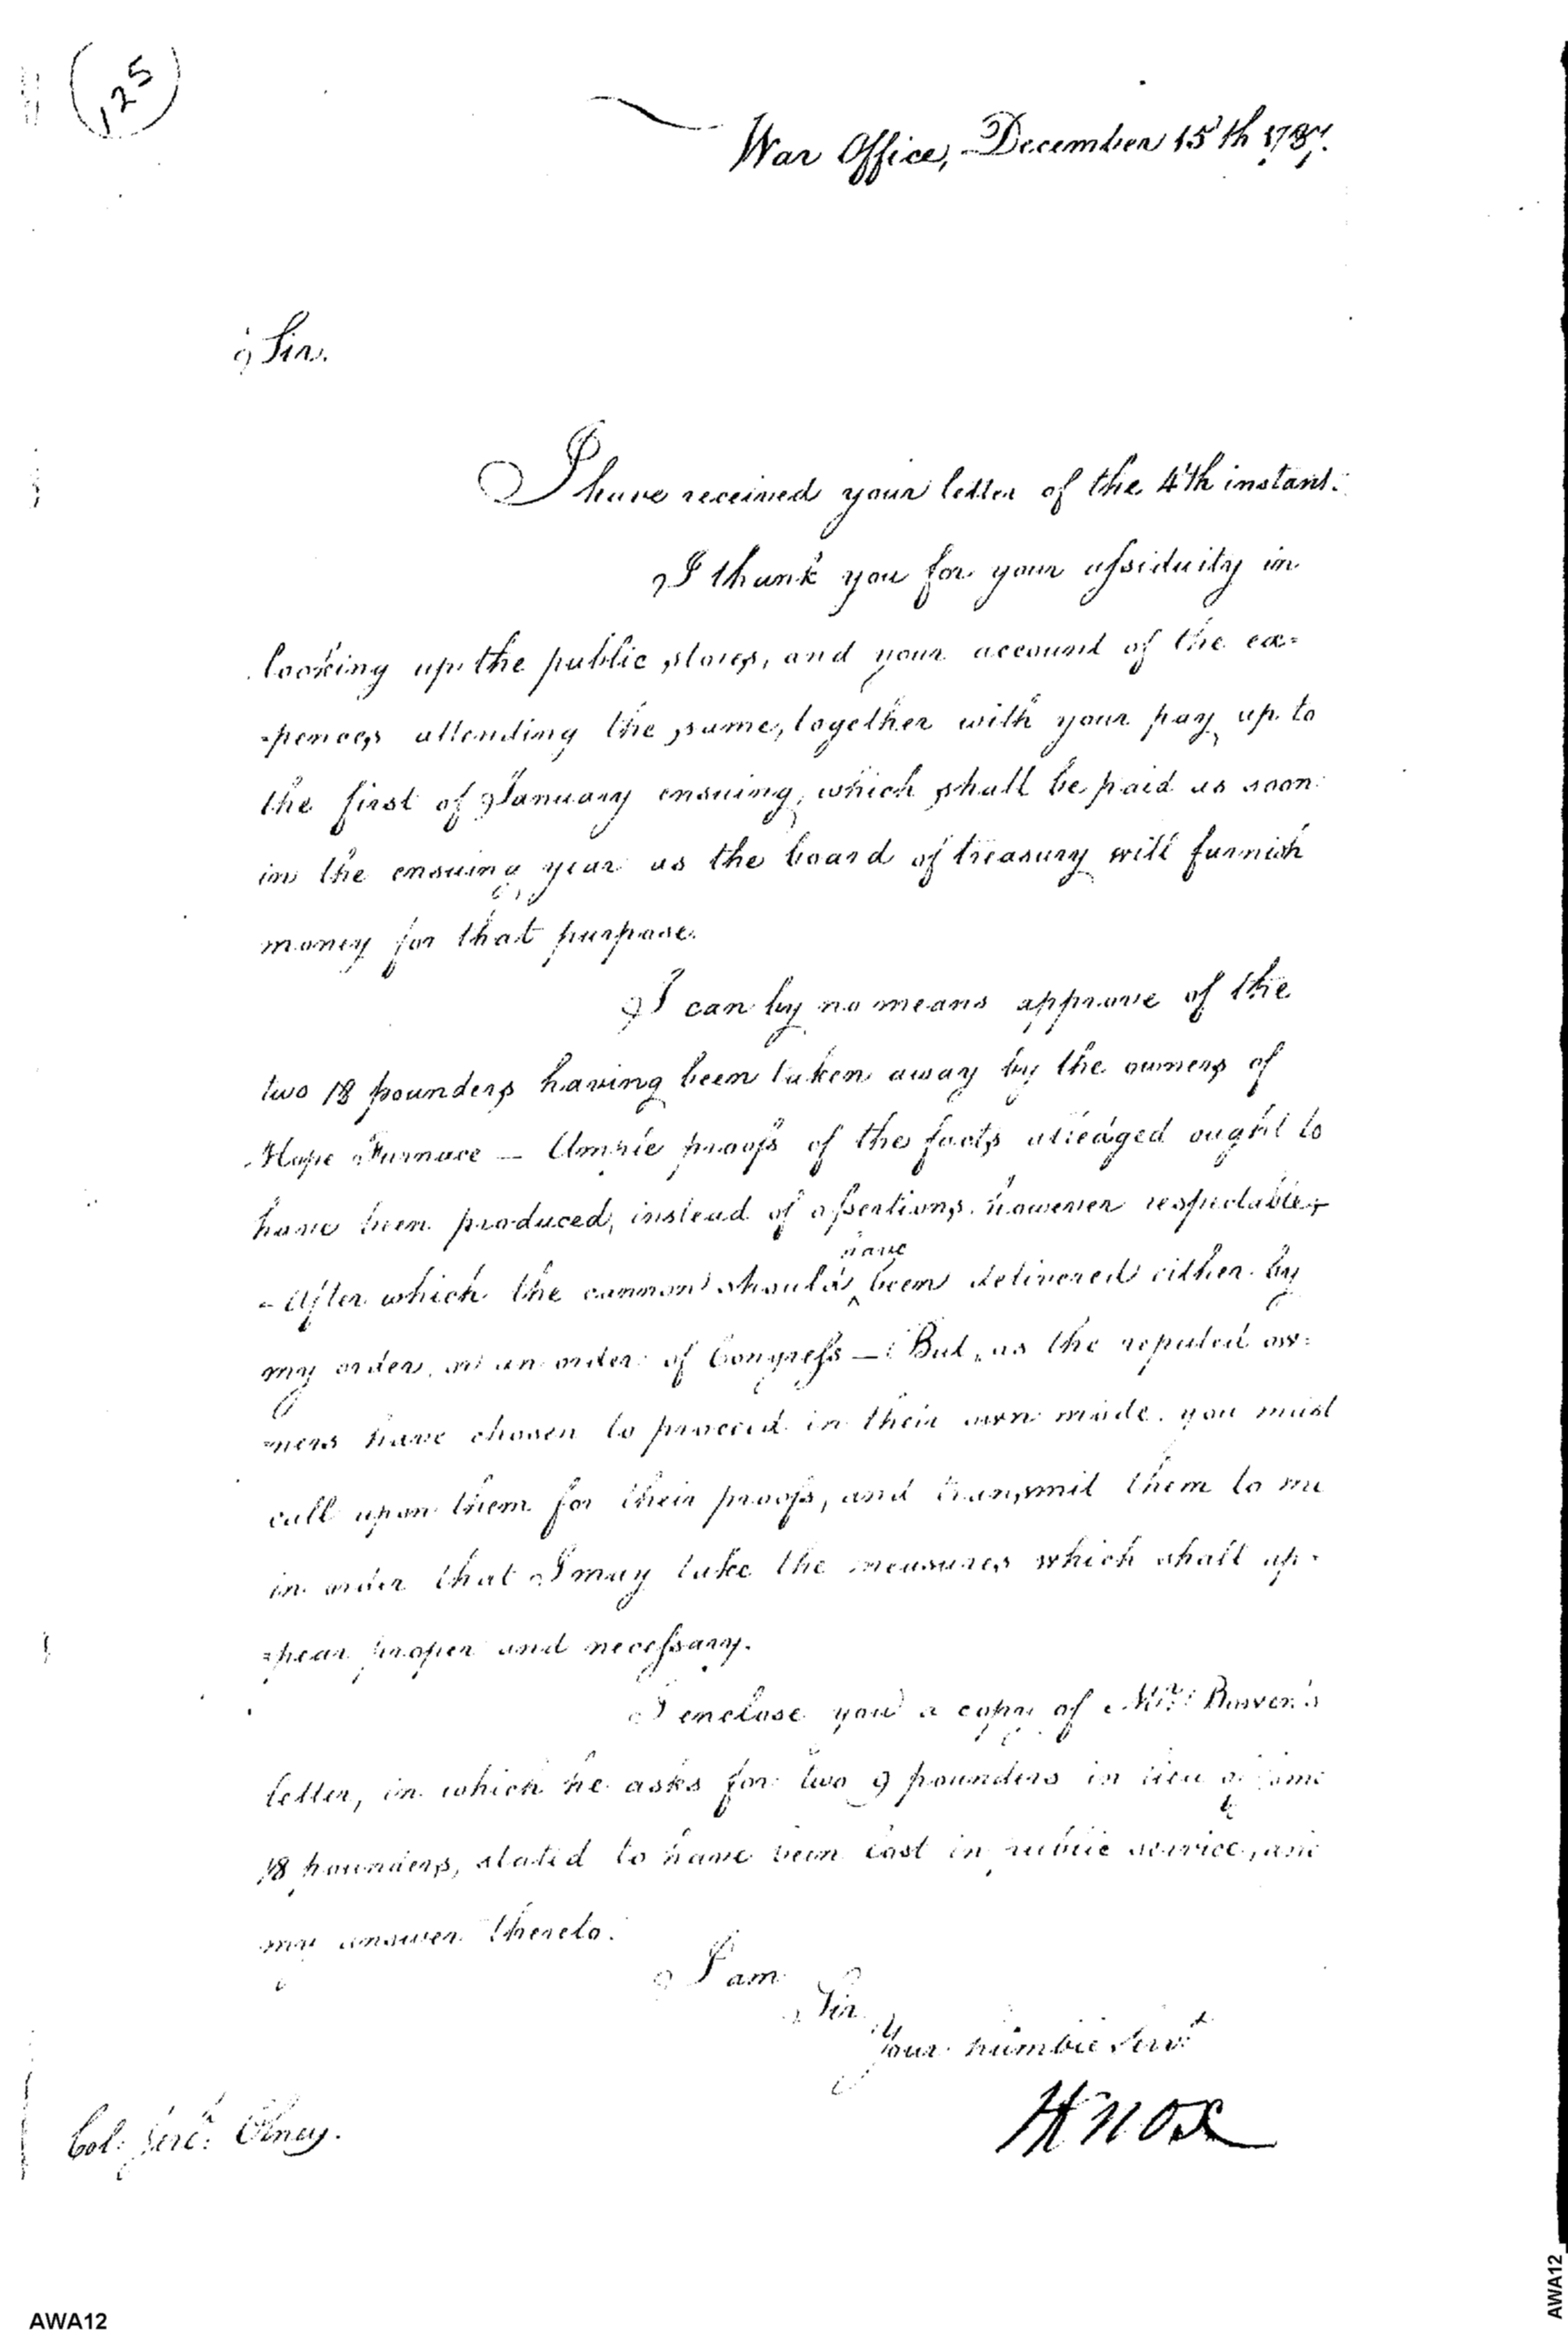 125
War Office, December 15th 1787.
Sir.
I have received your letter of the 4th instant.
I thank you for your assiduity in
looking up the public stores, and your account of the ex=
=pences attending the same, together with your pay up to
the first of January ensuing, which shall be paid as soon
in the ensuing year as the board of treasury will furnish
money for that purpose.
I can by no means approve of the
two 18 pounders having been taken away by the owners of
Hope Furnace — Ample proofs of the facts alledged ought to
have been produced, instead of assertions however respectable,
have
- After which the cannon should ^ been delivered either by
my order, or an order of Congress — But, as the reputed ow=
=ners have chosen to proceed in their own mode, you must
call upon them for their proofs, and transmit them to me
in order that I may take the measures which shall ap=
=pear proper and necessary.
I enclose you a copy of Mr. Bowen's
letter, in which he asks for two 9 pounders in lieu of some
18 pounders, stated to have been lost in public service, and
my answer thereto.
I am
Sir
Your humble Servt
HKnox
Col: Jere: Olney.
AWA12
AWA12